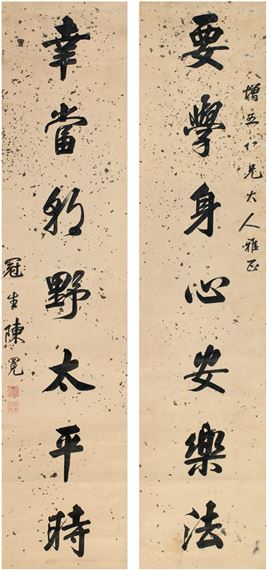 增五仁兄大人雅正
要學身心安樂法
幸當朝野太平時
冠生陳冕